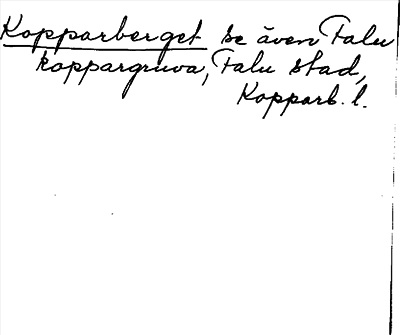 Kopparberget se även Falu
koppargruva, Falu stad,
Kopparb. l.